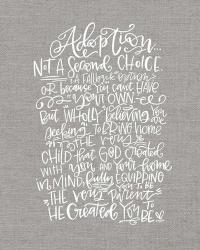 Adoption...
NOT A Second CHOICE.
A FALLBACK
OR because You can't HAVE
Your OWN
BUT WHOLLY BELIEVING YOU are
Seeking TO BRING HOME
THE VERY
CHILD THAT GOD CREATED
WITH YOU and YOUR HOME
IN MIND, fully EQUIPPING
YOU TO BE
THE VERY PARENT
HE CREATED YOU TO BE